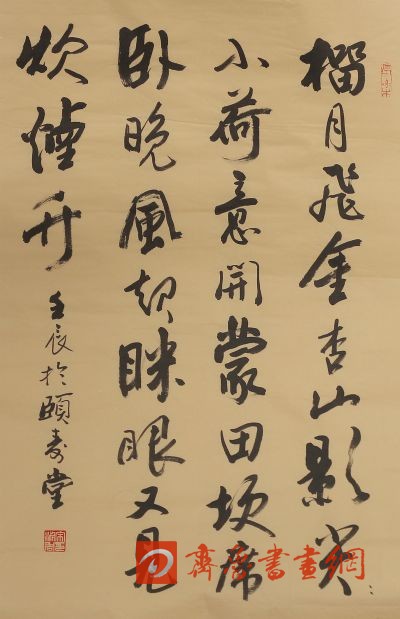 榴月飛金杏山影尖〻
小荷意開蒙田坎席
卧晚風起眯眼又見
炊煙升
壬辰於頤壽堂
書畫網